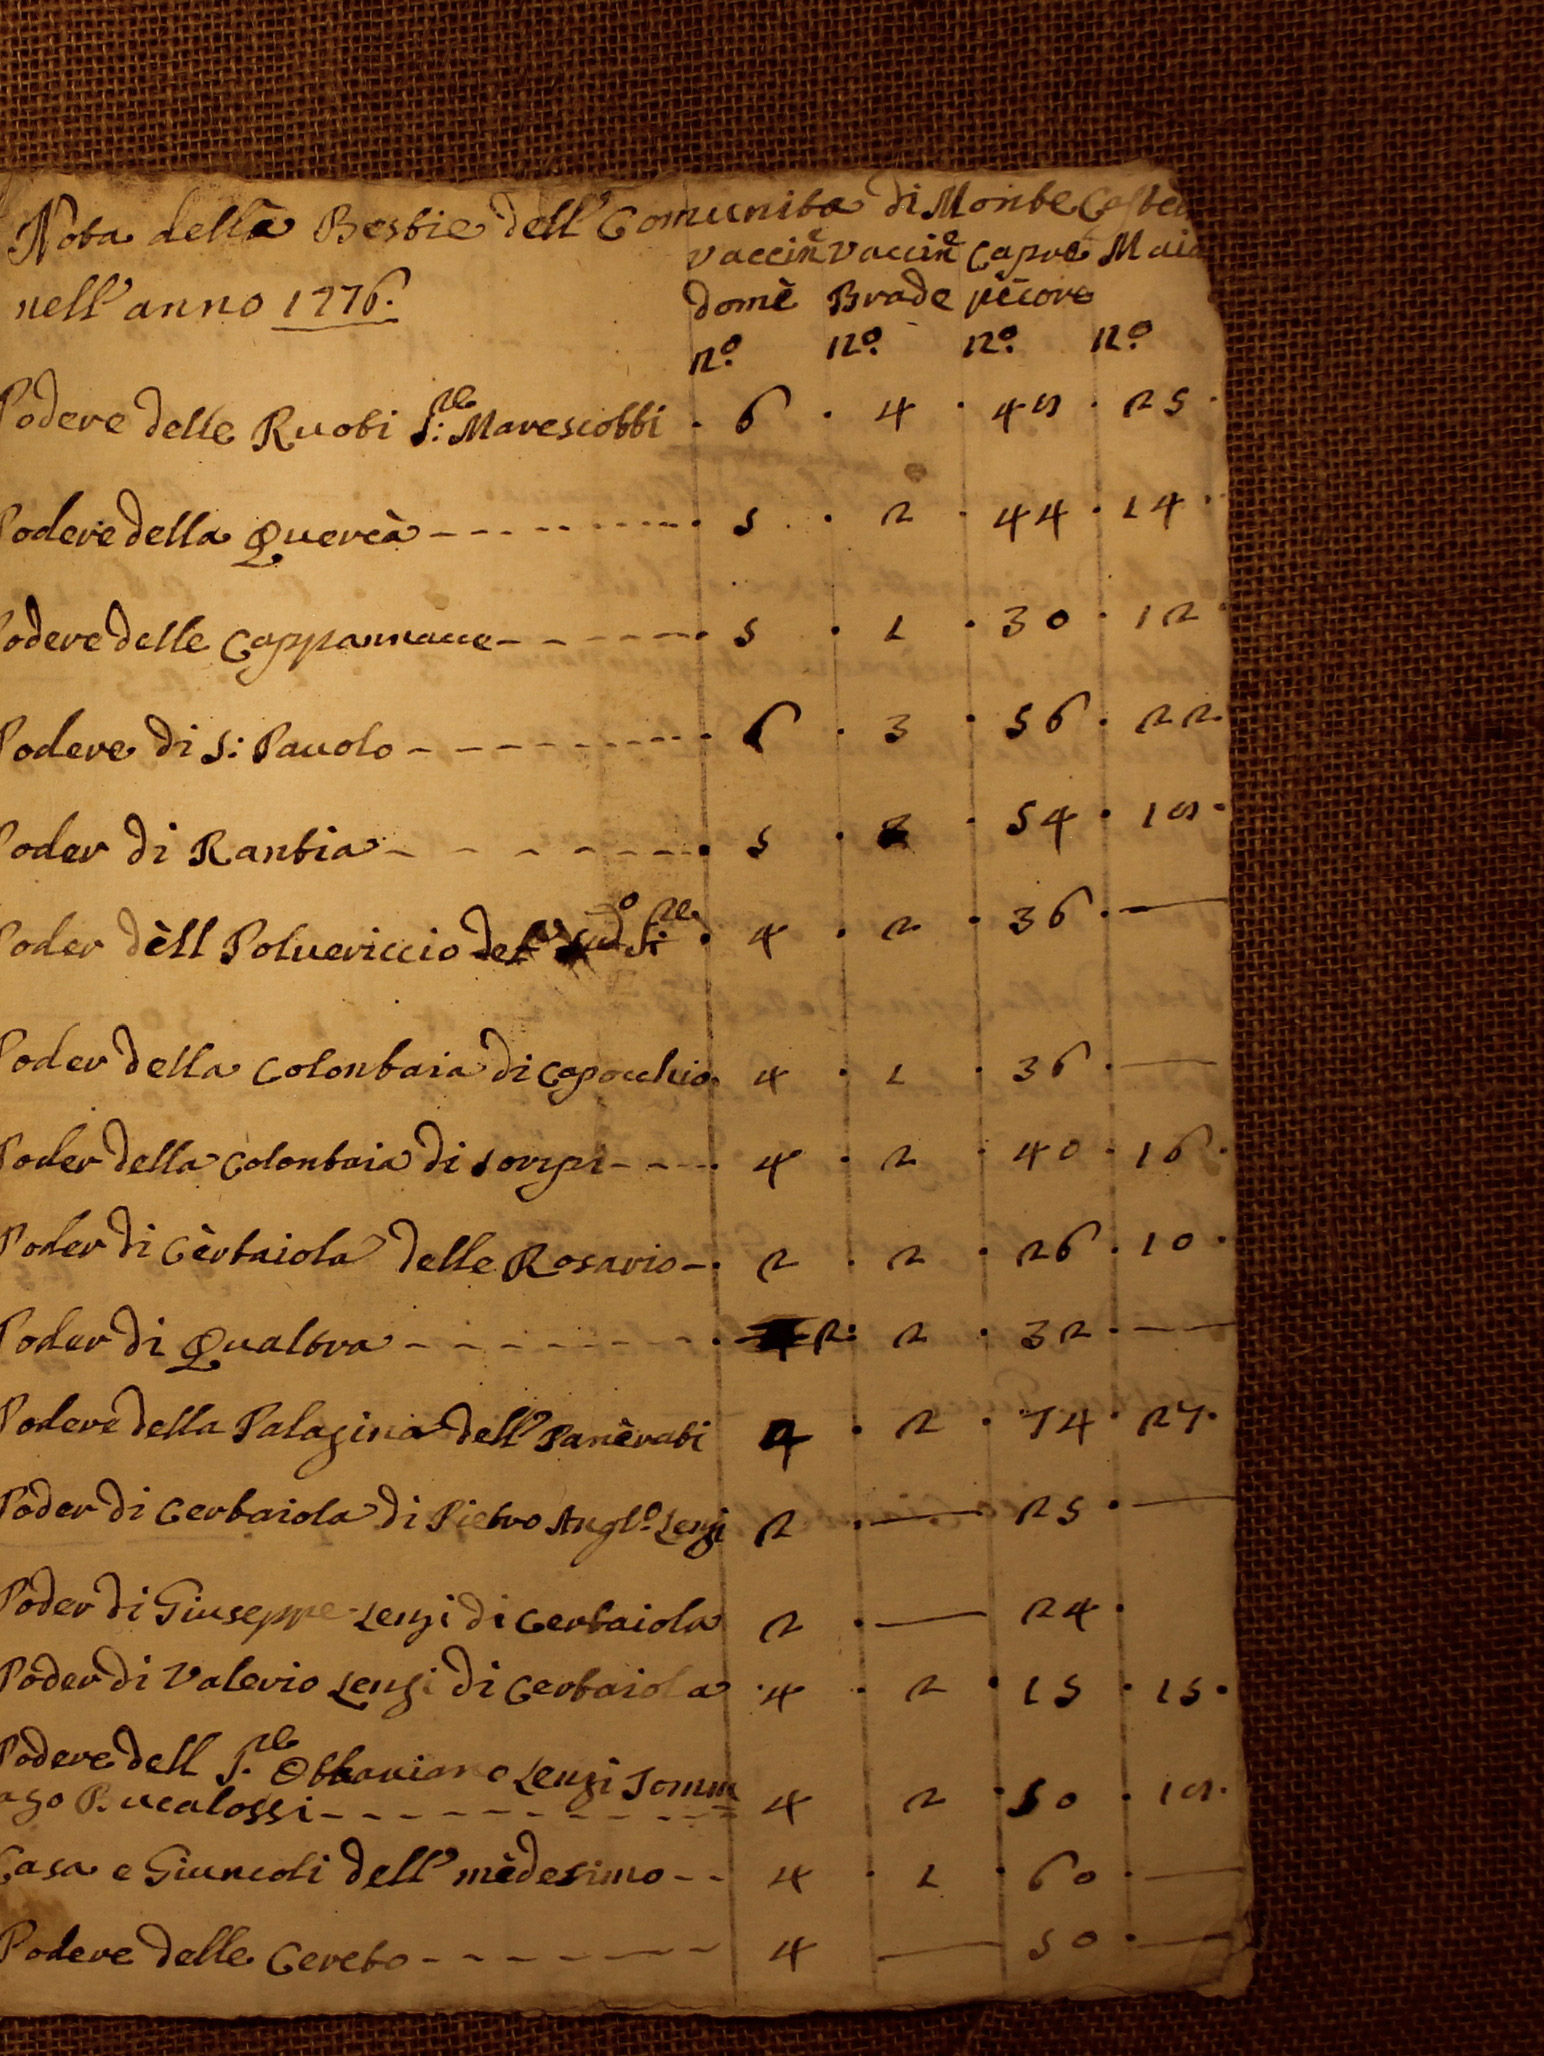 Nota della Bestie dell' Comunita di Monte Castel
vaccine vaccine Capre Maia
nell'anno 1776.
dome Brade pecore
no. no. no. no.
Podere delle Ruoti S:re Marescotti . 6 . 4 . 45 . 25 .
Podere della Quercà . 5 . 2 . 44 . 14 .
Podere delle Cappannacce . 5 . 1 . 30 . 12 .
Podere di S: Pauolo . 6 . 3 . 56 . 22 .
Poder di Rantia . 5 . 3 . 54 . 15 .
Poder dèll Poluericcio S:re . 4 . 2 . 36 . —
Poder della Colonbaia di Capocchio . 4 . 1 . 36 . —
Poder della Colonbaia di Sorripi . 4 . 2 . 40 . 16 .
Poder di Cèrbaiola delle Rosario . 2 . 2 . 26 . 10 .
Poder di Qualtra . 2 . 2 . 32 . —
Podere della Palagina dell' Panèrati 4 . 2 . 74 . 27 .
Poder di Cerbaiola di Pietro Angl:o Lenzi 2 . — 25 . —
Poder di Giuseppe Lenzi di Cerbaiola 2 . — 24 .
Poder di Valerio Lenzi di Cerbaiola . 4 . 2 . 15 . 15 .
Podere dell S.re Ottauiano Lenzi Tomm
aso Bucalossi 4 2 . 50 . 15 .
Casa e Giuncoli dell' mèdesimo 4 . 1 . 60 . —
Podere delle Cereto 4 — 50 . —